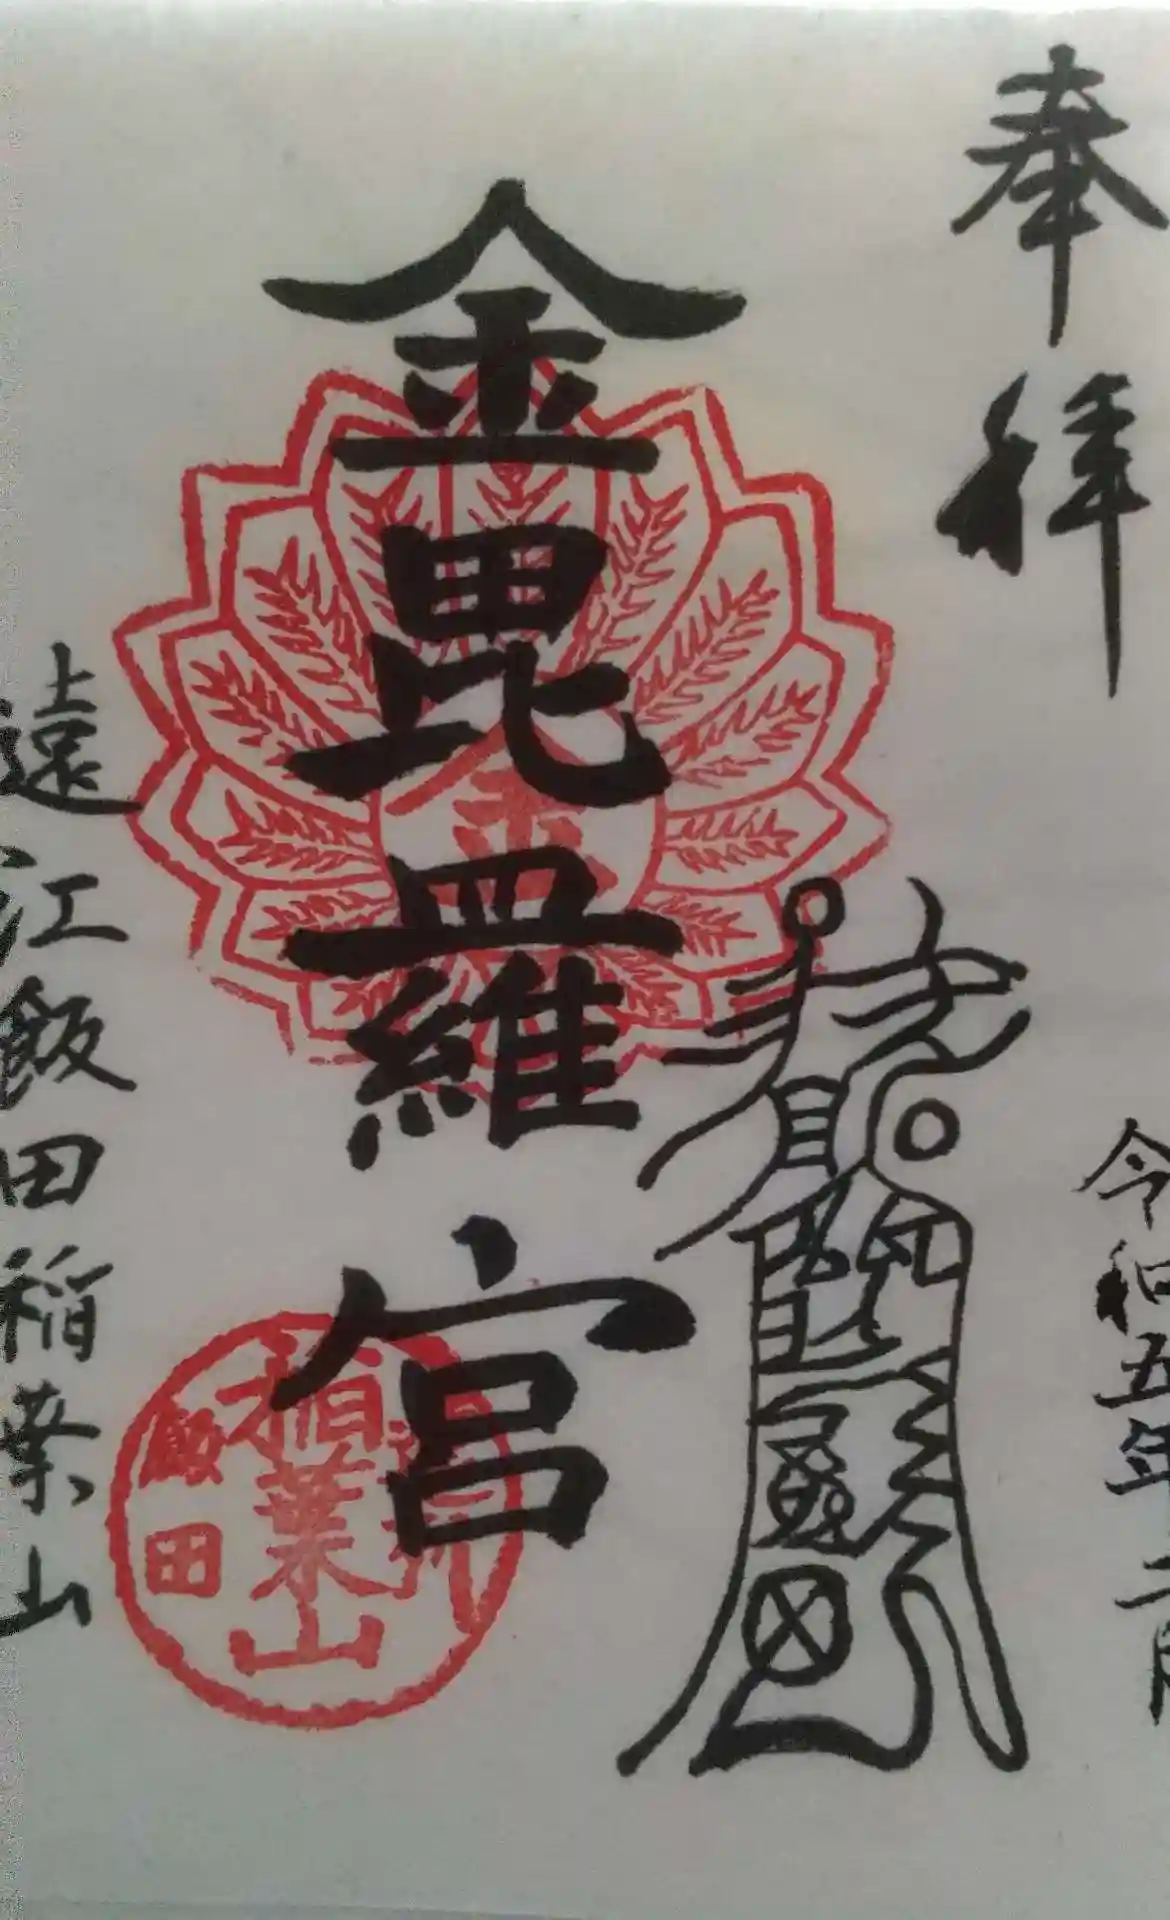 奉拝
令和五年二月
金毘羅宮
金
遠江飯田稲葉山
遠江
稲葉山
飯田